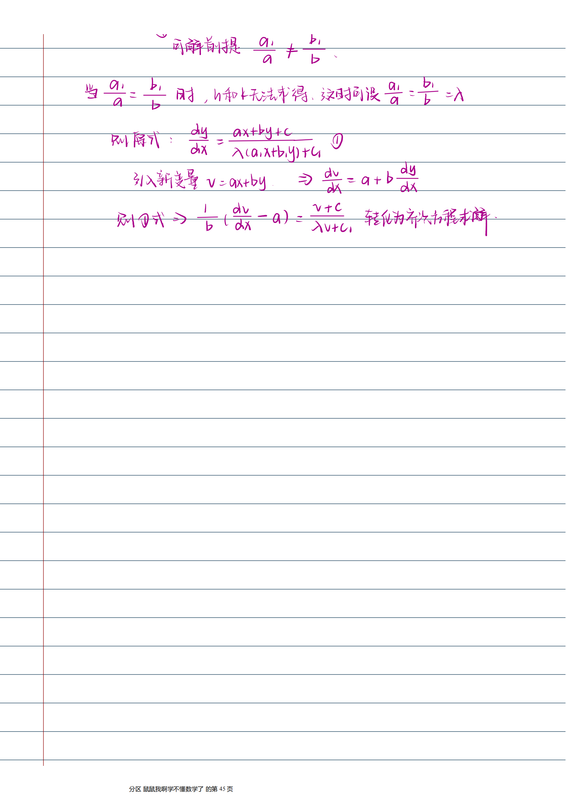 可解前提 a₁/a ≠ b₁/b .
当 a₁/a = b₁/b 时, h和k无法求得. 这时可设 a₁/a = b₁/b = λ
则原式: dy/dx = (ax+by+c)/(λ(a₁x+b₁y)+c₁) ①
引入新变量 v=ax+by ⇒ dv/dx = a + b dy/dx
则①式 ⇒ 1/b (dv/dx - a) = (v+c)/(λv+c₁) 转化为齐次方程求解.
分区 鼠鼠我啊学不懂数学了 的第 45 页